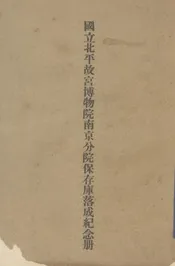 國立北平故宮博物院南京分院保存庫落成紀念册